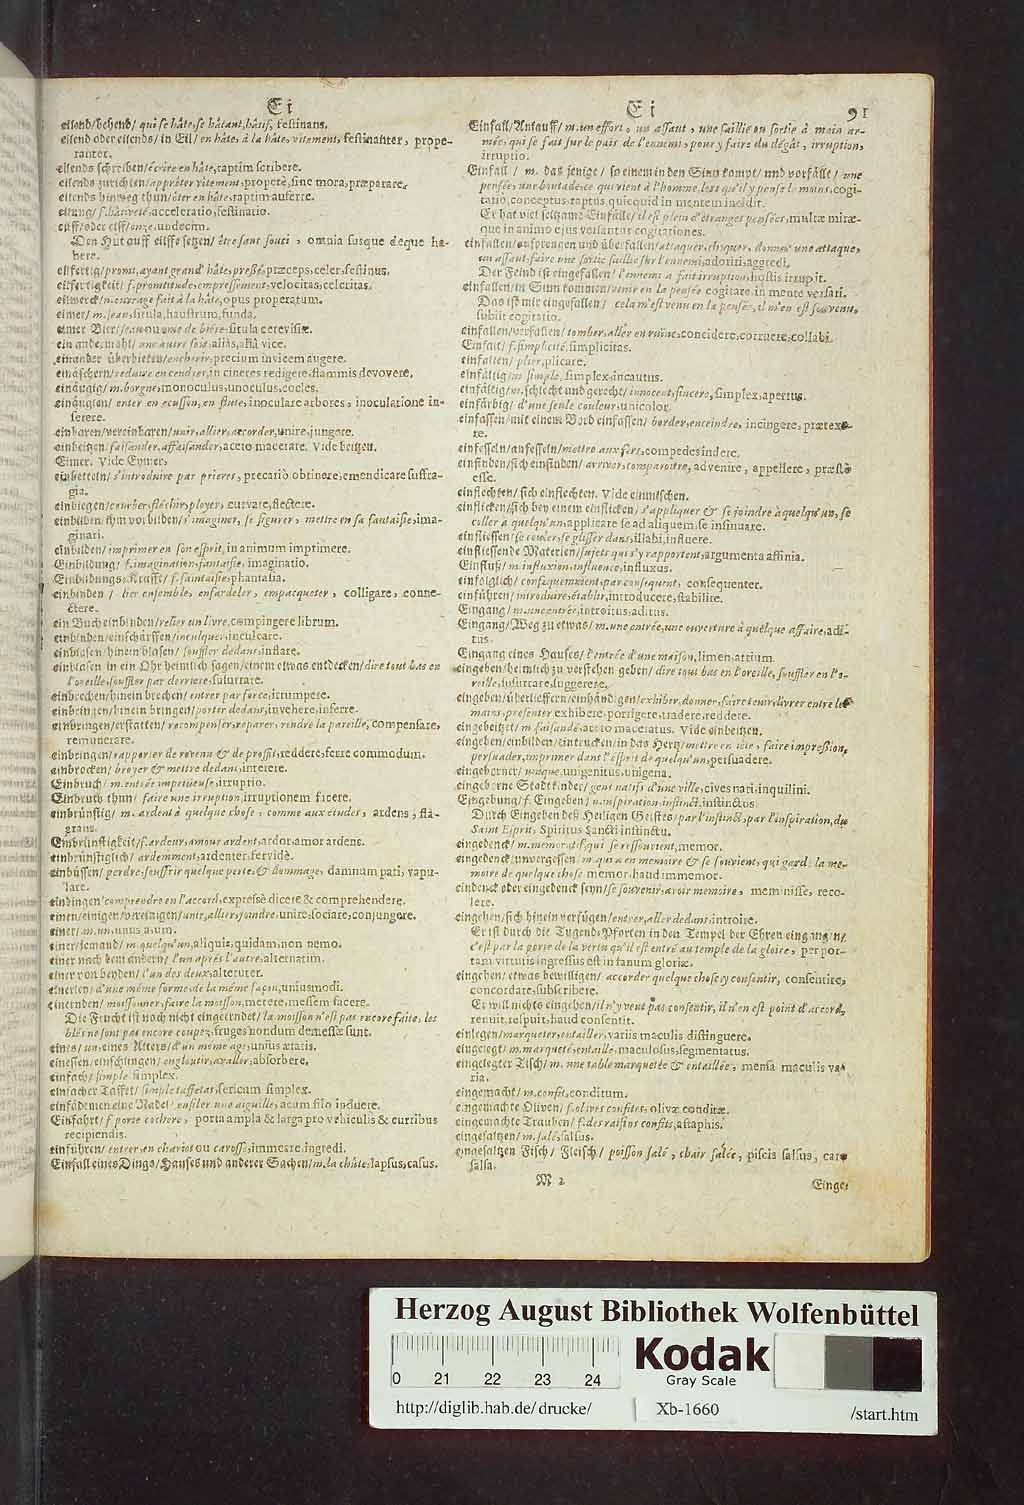 Ei
eilend/behend/ qui se hâte, se hâtant, hâtif, festinans.
eilend oder eilends/ in Eil/ en hâte, à la hâte, vitement, festinanter, prope-
ranter.
eilends schreiben/ écrire en hâte, raptim scribere.
eilends zurichten/ apprêter vitement, properè, sine mora, præparare.
eilends hinweg thun/ ôter en hâte, raptim auferre.
eilung/ f. hâtiveté, acceleratio, festinatio.
eilff/ oder elff/ onze, undecim.
Den Hut auff eilffe setzen/ être sans souci, omnia susque deque ha-
bere.
eilfertig/ promt, ayant grand' hâte, pressé, præceps, celer, festinus.
eilfertigkeit/ f. promtitude, empressement, velocitas, celeritas.
eilwerck/ n. ouvrage fait à la hâte, opus properatum.
eimer/ m. seau, situla, haustrum, funda.
eimer Bier/ seau ou une de biére, situla cerevisiæ.
ein ande, mahl/ une autre fois, aliàs, aliâ vice.
einander überbieten/ encherir, precium invicem augere.
einäschern/ reduire en cendres, in cineres redigere, flammis devovere.
einäugig/ m. borgne, monoculus, unoculus, cocles.
einäuglen/ enter en ecusson, en flute, inoculare arbores, inoculatione in-
serere.
einbaren/ vereinbaren/ unir, allier, accorder, unire, jungere.
einbeitzen/ faisander, affaisander, aceto macerare. Vide beitzen.
Eimer. Vide Eymer.
einbetteln/ s'introduire par prieres, precariò obtinere, emendicare suffra-
gia.
einbiegen/ courber, fléchir, ployer, curvare, flectere.
einbilden/ ihm vorbilden/ s'imaginer, se figurer, mettre en sa fantaisie, ima-
ginari.
einbilden/ imprimer en son esprit, in animum imprimere.
Einbildung/ f. imagination, fantaisie, imaginatio.
Einbildungs-Krafft/ f. fantaisie, phantasia.
einbinden/ lier ensemble, enfardeler, empacqueter, colligare, conne-
ctere.
ein Buch einbinden/ relier un livre, compingere librum.
einbinden/ einschärffen/ inculquer, inculcare.
einblasen/ hinein blasen/ souffler dedans, inflare.
einblasen in ein Ohr heimlich sagen/ einem etwas entdecken/ dire tout bas en
l'oreille, souffler par derriere, susurrare.
einbrechen/ hinein brechen/ entrer par force, irrumpere.
einbringen/ hinein bringen/ porter dedans, invehere, inferre.
einbringen/ erstatten/ recompenser, reparer, rendre la pareille, compensare,
remunerare.
einbringen/ rapporter de revenu & de profit, reddere, ferre commodum.
einbrocken/ broyer & mettre dedans, interere.
Einbruch/ m. entrée impetueuse, irruptio.
Einbruch thun/ faire une irruption, irruptionem facere.
einbrünstig/ m. ardent à quelque chose, comme aux études, ardens, fla-
grans.
Einbrünstigkeit/ f. ardeur, amour ardent, ardor, amor ardens.
einbrünstiglich/ ardemment, ardenter, fervidè.
einbüssen/ perdre, souffrir quelque perte, & dommage, damnum pati, vapu-
lare.
eindingen/ comprendre en l'accord, expressè dicere & comprehendere.
einen/ einigen/ vereinigen/ unir, allier, joindre, unire, sociare, conjungere.
einer/ m. un, unus, a, um.
einer/ jemand/ m. quelqu'un, aliquis, quidam, non nemo.
einer nach dem andern/ l'un aprés l'autre, alternatim.
einer von beyden/ l'un des deux, alteruter.
einerley/ d'une même forme, de la même façon, uniusmodi.
einernden/ moissonner, faire la moisson, metere, messem facere.
Die Frucht ist noch nicht eingeerndet/ la moisson n'est pas encore faite, les
blés ne sont pas encore coupez, fruges nondum demessæ sunt.
eines/ un, eines Alters/ d'un même age, unius ætatis.
einessen/ einschlingen/ engloutir, avaller, absorbere.
einfach/ simple simplex.
einfacher Taffet/ simple taffetas, sericum simplex.
einfädemen eine Nadel/ enfiler une aiguille, acum filo induere.
Einfahrt/ f. porte cochere, porta ampla & larga pro vehiculis & curribus
recipiendis.
einführen/ entrer en chariot ou carosse, immeare, ingredi.
Einfall eines Dings/ Hauses und anderer Sachen/ m. la chûte, lapsus, casus.
Ei
91
Einfall/ Anlauff/ m. un effort, un assaut, une saillie ou sortie à main ar-
mée, qui se fait sur le païs de l'ennemi, pour y faire du dégât, irruption,
irruptio.
Einfall/ m. das jenige/ so einem in den Sinn kompt/ und vorfällt/ une
pensée, une boutade, ce qui vient à l'homme, lors qu'il y pense le moins, cogi-
tatio, conceptus, raptus, quicquid in mentem incidit.
Er hat viel seltzame Einfälle/ il est plein d'étranges pensées, multæ miræ-
que in animo ejus versantur cogitationes.
einfallen/ ansprengen und überfallen/ attaquer, choquer, donner une attaque,
un assaut, faire une sortie, saillie sur l'ennemi, adoriri, aggredi.
Der Feind ist eingefallen/ l'ennemi a fait irruption, hostis irrupit.
einfallen/ in Sinn kommen/ venir en la pensée, cogitare, in mente versari.
Das ist mir eingefallen/ cela m'est venu en la pensée, il m'en est souvenu,
subiit cogitatio.
einfallen/ verfallen/ tomber, aller en ruine, concidere, corruere, collabi.
Einfalt/ f. simplicité, simplicitas.
einfalten/ plier, plicare.
einfältig/ m. simple, simplex, incautus.
einfältig/ m. schlecht und gerecht/ innocent, sincere, simplex, apertus.
einfärbig/ d'une seule couleur, unicolor.
einfassen/ mit einem Bord einfassen/ border, enceindre, incingere, prætexe-
re.
einfesseln/ anfesseln/ mettre aux fers, compedes indere.
einfinden/ sich einfinden/ arriver, comparoitre, advenire, appellere, præstò
esse.
einflechten/ sich einflechten. Vide einmischen.
einflicken/ sich bey einem einflicken/ s'appliquer & se joindre à quelqu'un, se
coller à quelqu'un, applicare se ad aliquem, se insinuare.
einfliessen/ se couler, se glisser dans, illabi, influere.
einfliessende Materien/ sujets qui s'y rapportent, argumenta affinia.
Einfluß/ m. influxion, influence, influxus.
einfolglich/ consequemment, par consequent, consequenter.
einführen/ introduire, établir, introducere, stabilire.
Eingang/ m. une entrée, introitus, aditus.
Eingang/ Weg zu etwas/ m. une entrée, une ouverture à quelque affaire, adi-
tus.
Eingang eines Hauses/ l'entrée d'une maison, limen, atrium.
eingeben/ heimlich zu verstehen geben/ dire tout bas en l'oreille, souffler en l'o-
reille, insusurrare, suggerere.
eingeben/ überlieffern/ einhändigen/ exhiber, donner, faire tenir, livrer entre les
mains, presenter exhibere, porrigere, tradere, reddere.
eingebeitzet/ m. faisandé, aceto maceratus. Vide einbeitzen.
eingeben/ einbilden/ eintrucken/ in das Hertz/ mettre en tête, faire impression,
persuader, imprimer dans l'esprit de quelqu'un, persuadere.
eingeborner/ unique, unigenitus, unigena.
eingeborne Stadtkinder/ gens natifs d'une ville, cives nati, inquilini.
Eingebung/ f. Eingeben/ n. inspiration, instinct, instinctus.
Durch Eingeben deß Heiligen Geistes/ par l'instinct, par l'inspiration, du
Saint Esprit, Spiritus Sancti instinctu.
eingedenck/ m. memoratif, qui se ressouvient, memor.
eingedenck/ unvergessen/ m. qui a en memoire & se souvient, qui garde la me-
moire de quelque chose memor, haud immemor.
eindenck oder eingedenck seyn/ se souvenir, avoir memoire, meminisse, reco-
lere.
eingehen/ sich hinein verfügen/ entrer, aller dedans, introire.
Er ist durch die Tugend-Pforten in den Tempel der Ehren eingangen/
c'est par la porte de la vertu qu'il est entré au temple de la gloire, per por-
tam virtutis ingressus est in fanum gloriæ.
eingehen/ etwas bewilligen/ accorder quelque chose, y consentir, consentire,
concordare, subscribere.
Er will nichts eingehen/ il n'y veut pas consentir, il n'en est point d'accord,
renuit, respuit, haud consentit.
einlegen/ marqueter, entailler, variis maculis distinguere.
eingelegt/ m. marqueté, entaillé, maculosus, segmentatus.
eingelegter Tisch/ m. une table marquetée & entaillée, mensa maculis va-
ria.
eingemacht/ m. confit, conditum.
eingemachte Oliven/ f. olives confites, olivæ conditæ.
eingemachte Trauben/ f. des raisins confits, astaphis.
eingesaltzen/ m. salé, salsus.
eingesaltzen Fisch/ Fleisch/ poisson salé, chair salée, piscis salsus, caro
salsa.
M 2
Einge-
Herzog August Bibliothek Wolfenbüttel
Kodak
Gray Scale
0 21 22 23 24
http://diglib.hab.de/drucke/ Xb-1660 /start.htm